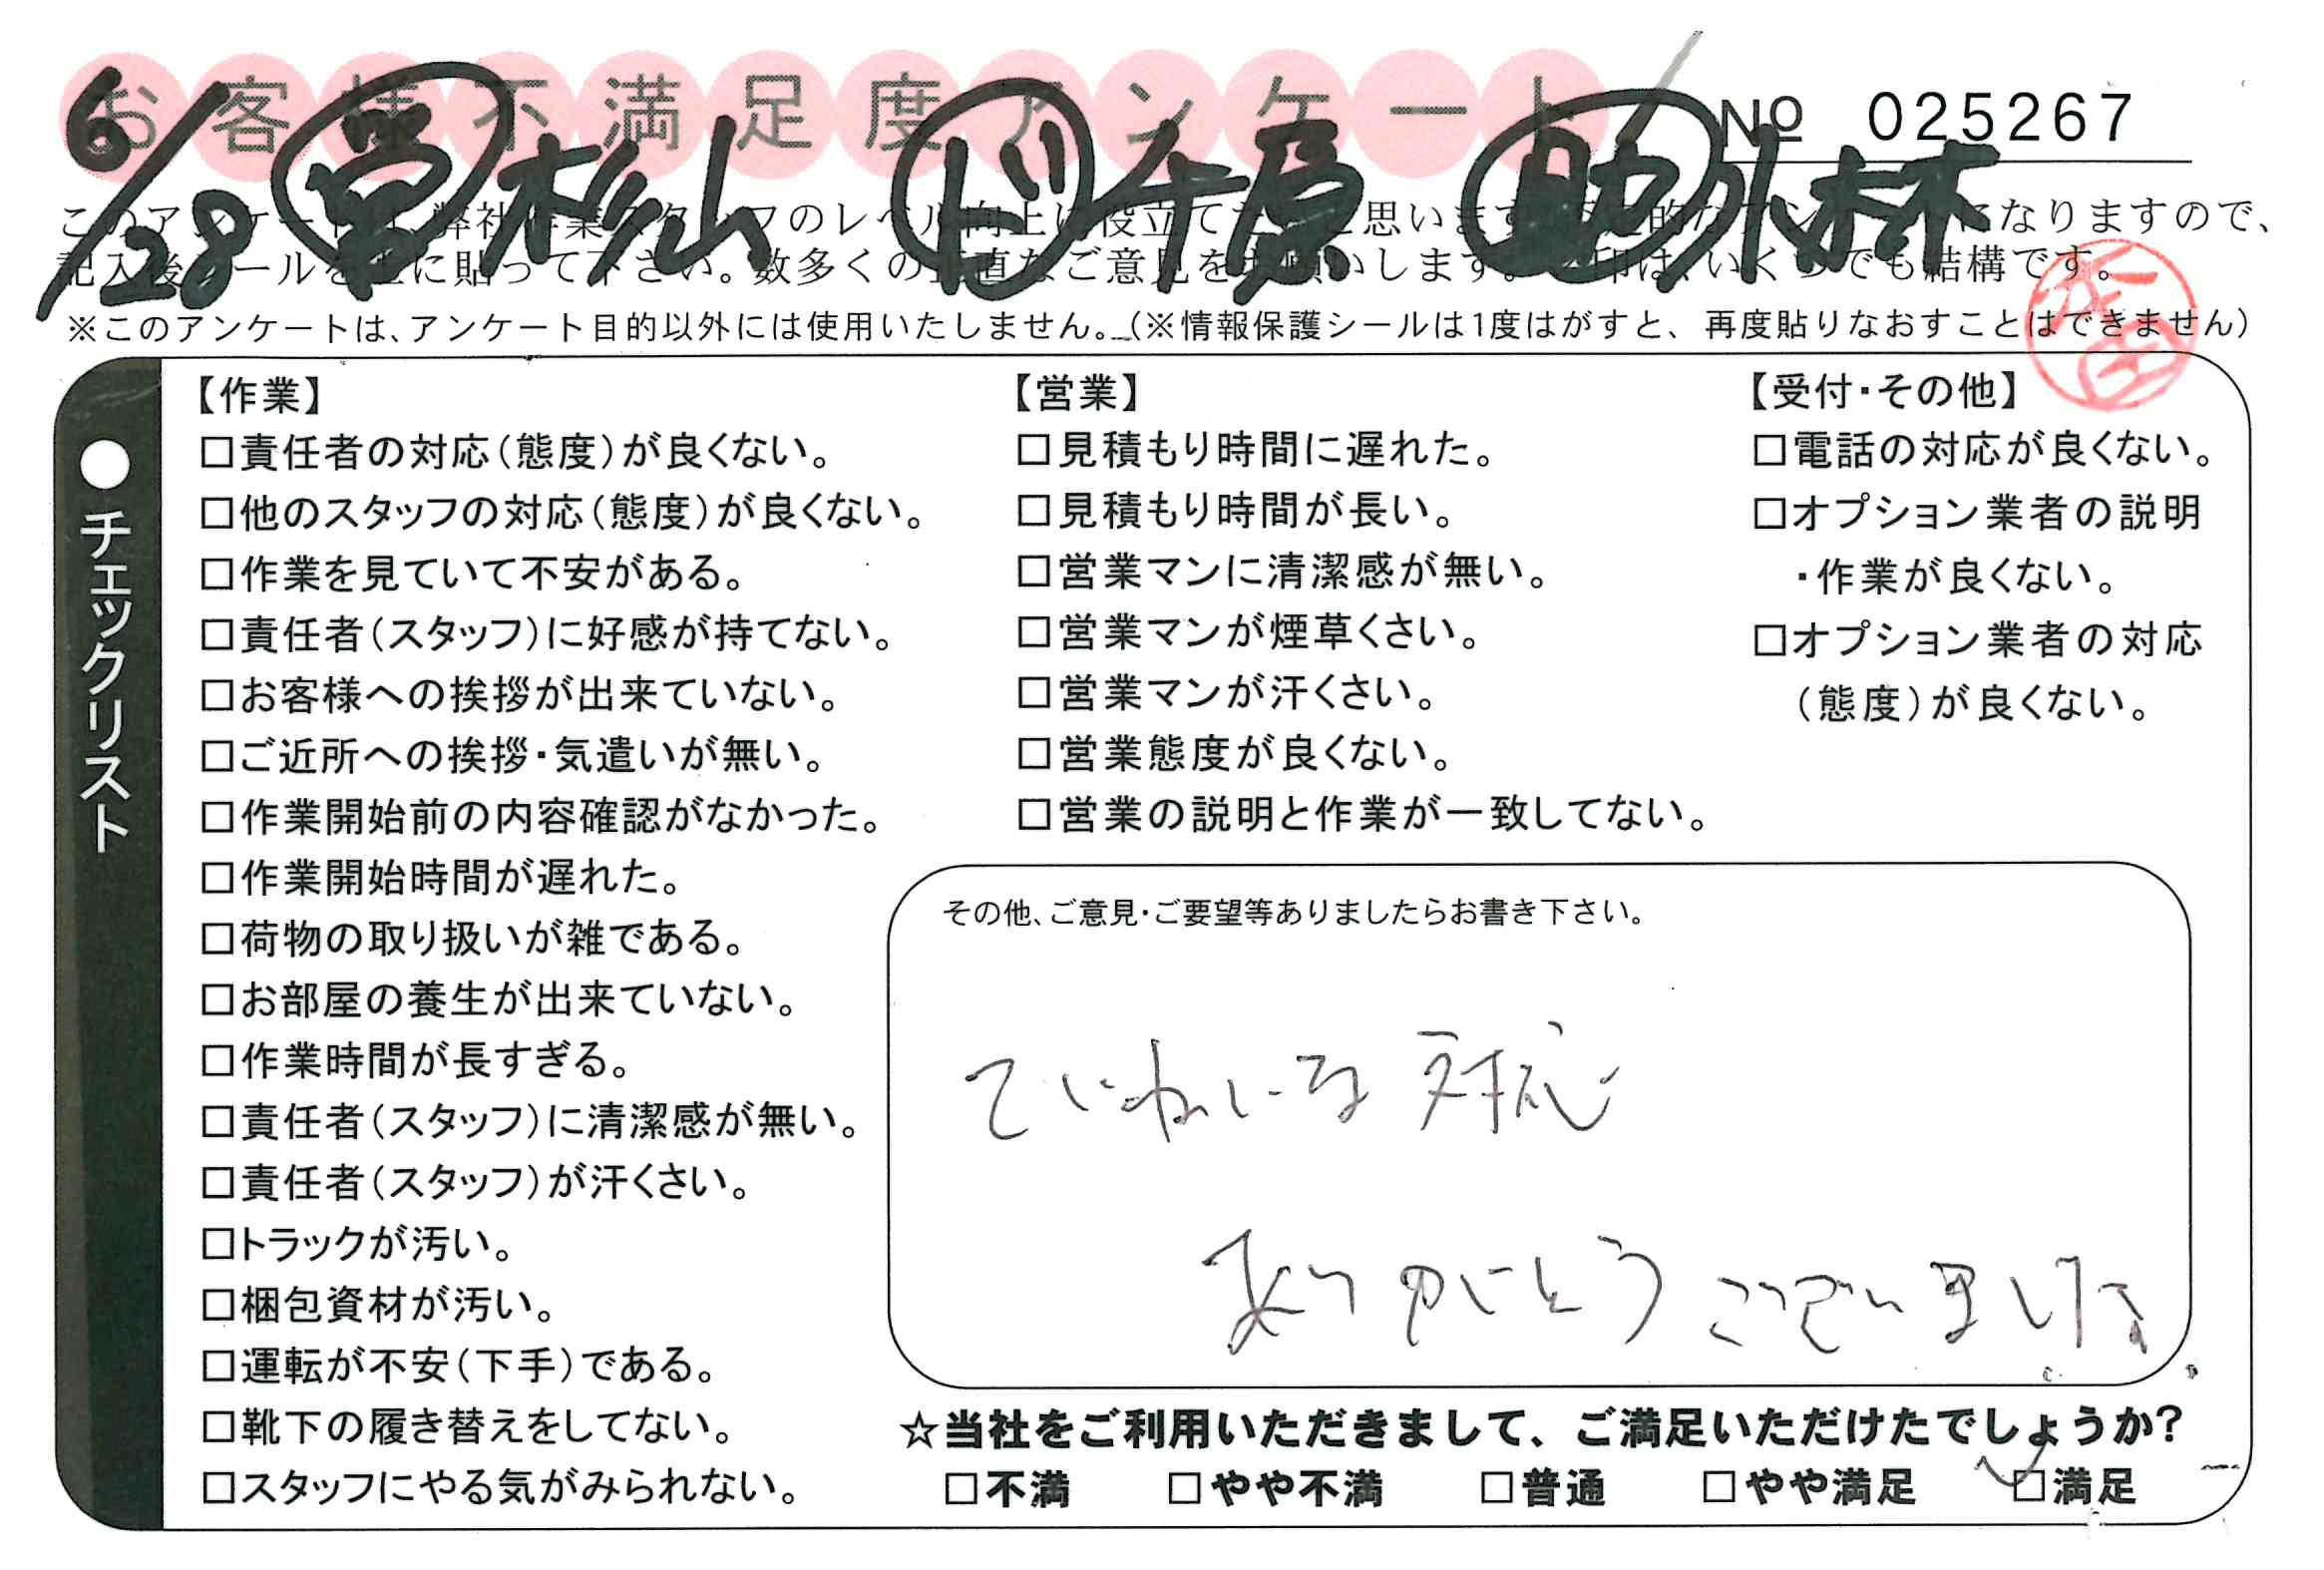 お客様不満足度アンケート
№ 025267
6/28 営 杉山 ド 千原 助 小林
このアンケートは、弊社作業スタッフのレベル向上に役立てたいと思います。 になりますので、
記入後シールを上に貼って下さい。数多くの正直なご意見をお願いします。 印は、いくつでも結構です。
※このアンケートは、アンケート目的以外には使用いたしません。(※情報保護シールは1度はがすと、再度貼りなおすことはできません)
●チェックリスト
【作業】
□責任者の対応(態度)が良くない。
□他のスタッフの対応(態度)が良くない。
□作業を見ていて不安がある。
□責任者(スタッフ)に好感が持てない。
□お客様への挨拶が出来ていない。
□ご近所への挨拶・気遣いが無い。
□作業開始前の内容確認がなかった。
□作業開始時間が遅れた。
□荷物の取り扱いが雑である。
□お部屋の養生が出来ていない。
□作業時間が長すぎる。
□責任者(スタッフ)に清潔感が無い。
□責任者(スタッフ)が汗くさい。
□トラックが汚い。
□梱包資材が汚い。
□運転が不安(下手)である。
□靴下の履き替えをしてない。
□スタッフにやる気がみられない。
【営業】
□見積もり時間に遅れた。
□見積もり時間が長い。
□営業マンに清潔感が無い。
□営業マンが煙草くさい。
□営業マンが汗くさい。
□営業態度が良くない。
□営業の説明と作業が一致してない。
【受付・その他】
□電話の対応が良くない。
□オプション業者の説明
・作業が良くない。
□オプション業者の対応
(態度)が良くない。
その他、ご意見・ご要望等ありましたらお書き下さい。
ていねいな対応
ありがとうございました
☆当社をご利用いただきまして、ご満足いただけたでしょうか?
□不満 □やや不満 □普通 □やや満足 ☑満足